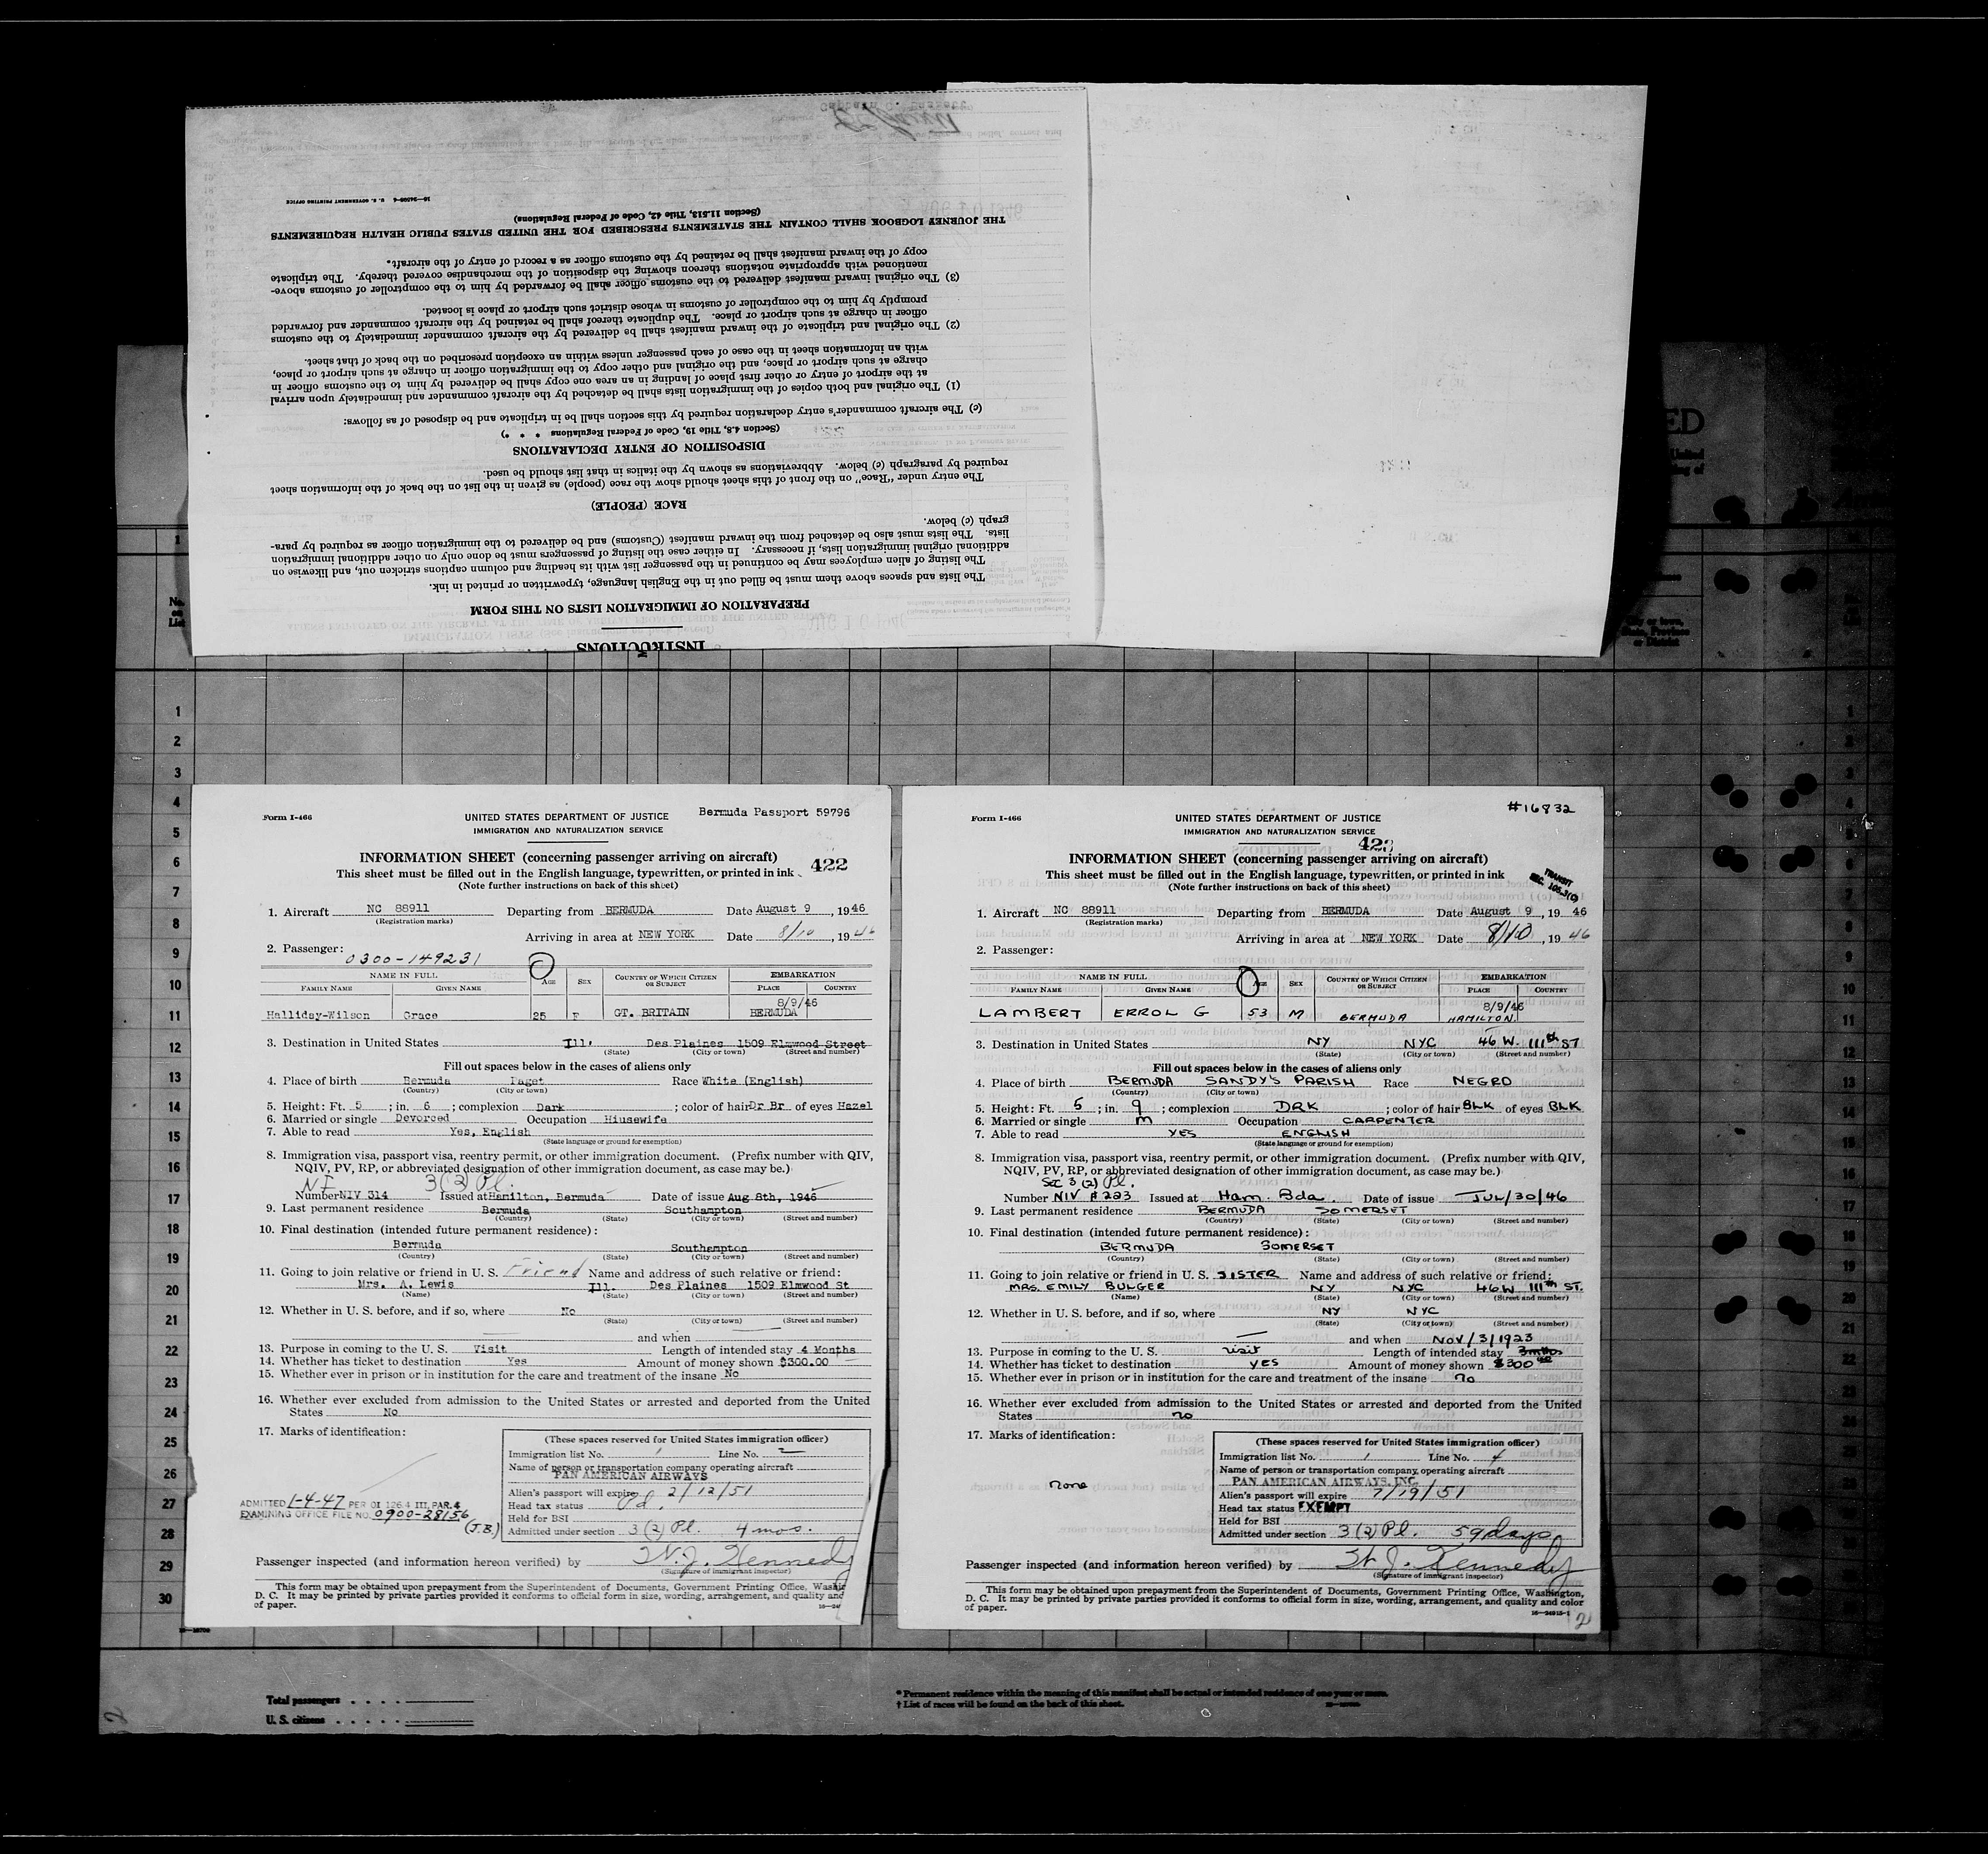 INSTRUCTIONS
PREPARATION OF IMMIGRATION LISTS ON THIS FORM
The lists and spaces above them must be filled out in the English language, typewritten or printed in ink.
The listing of alien employees may be continued in the passenger list with its heading and column captions stricken out, and likewise on
additional original immigration lists, if necessary. In either case the listing of passengers must be done only on other additional immigration
lists. The lists must also be detached from the inward manifest (Customs) and be delivered to the immigration officer as required by para-
graph (c) below.
RACE (PEOPLE)
The entry under "Race" on the front of this sheet should show the race (people) as given in the list on the back of the information sheet
required by paragraph (c) below. Abbreviations as shown by the italics in that list should be used.
DISPOSITION OF ENTRY DECLARATIONS
(Section 4.8, Title 19, Code of Federal Regulations * * *)
(c) The aircraft commander's entry declaration required by this section shall be in triplicate and be disposed of as follows:
(1) The original and both copies of the immigration lists shall be detached by the aircraft commander and immediately upon arrival
at the airport of entry or other first place of landing in an area one copy shall be delivered by him to the customs officer in
charge at such airport or place, and the original and other copy to the immigration officer in charge at such airport or place,
with an information sheet in the case of each passenger unless within an exception prescribed on the back of that sheet.
(2) The original and triplicate of the inward manifest shall be delivered by the aircraft commander immediately to the customs
officer in charge at such airport or place. The duplicate thereof shall be retained by the aircraft commander and forwarded
promptly by him to the comptroller of customs in whose district such airport or place is located.
(3) The original inward manifest delivered to the customs officer shall be forwarded by him to the comptroller of customs above-
mentioned with appropriate notations thereon showing the disposition of the merchandise covered thereby. The triplicate
copy of the inward manifest shall be retained by the customs officer as a record of entry of the aircraft.
THE JOURNEY LOGBOOK SHALL CONTAIN THE STATEMENTS PRESCRIBED FOR THE UNITED STATES PUBLIC HEALTH REQUIREMENTS
(Section 11.513, Title 42, Code of Federal Regulations)
U. S. GOVERNMENT PRINTING OFFICE
No. on List
1
2
3
4
5
6
7
8
9
10
11
12
13
14
15
16
17
18
19
20
21
22
23
24
25
26
27
28
29
30
Form I-466 UNITED STATES DEPARTMENT OF JUSTICE Bermuda Passport 59796
IMMIGRATION AND NATURALIZATION SERVICE
INFORMATION SHEET (concerning passenger arriving on aircraft) 422
This sheet must be filled out in the English language, typewritten, or printed in ink
(Note further instructions on back of this sheet)
1. Aircraft NC 88911 Departing from BERMUDA Date August 9, 1946
(Registration marks)
Arriving in area at NEW YORK Date 8/10, 1946
2. Passenger:
0300-149231
NAME IN FULL AGE SEX COUNTRY OF WHICH CITIZEN OR SUBJECT EMBARKATION
FAMILY NAME GIVEN NAME PLACE COUNTRY
8/9/46
Halliday-Wilson Grace 25 F GT. BRITAIN BERMUDA
3. Destination in United States Ill. Des Plaines 1509 Elmwood Street
(State) (City or town) (Street and number)
Fill out spaces below in the cases of aliens only
4. Place of birth Bermuda Paget Race White (English)
(Country) (City or town)
5. Height: Ft. 5 ; in. 6 ; complexion Dark ; color of hair Dr Br of eyes Hazel
6. Married or single Devorced Occupation Hiusewife
7. Able to read Yes, English
(State language or ground for exemption)
8. Immigration visa, passport visa, reentry permit, or other immigration document. (Prefix number with QIV,
NQIV, PV, RP, or abbreviated designation of other immigration document, as case may be.)
3(2) Pl.
Number NIV 314 Issued at Hamilton, Bermuda Date of issue Aug 8th, 1946
9. Last permanent residence Bermuda Southampton
(Country) (State) (City or town) (Street and number)
10. Final destination (intended future permanent residence):
Bermuda Southampton
(Country) (State) (City or town) (Street and number)
11. Going to join relative or friend in U. S. Friend Name and address of such relative or friend:
Mrs. A. Lewis Ill. Des Plaines 1509 Elmwood St
(Name) (State) (City or town) (Street and number)
12. Whether in U. S. before, and if so, where No
(State) (City or town) (Street and number)
and when
13. Purpose in coming to the U. S. Visit Length of intended stay 4 Months
14. Whether has ticket to destination Yes Amount of money shown $300.00
15. Whether ever in prison or in institution for the care and treatment of the insane No
16. Whether ever excluded from admission to the United States or arrested and deported from the United
States No
17. Marks of identification:
(These spaces reserved for United States immigration officer)
Immigration list No. 1 Line No. 2
Name of person or transportation company operating aircraft
PAN AMERICAN AIRWAYS
Alien's passport will expire 2/12/51
Head tax status Pd.
Held for BSI
Admitted under section 3(2) Pl. 4 mos.
ADMITTED 1-4-47 PER OI 126.4 III, PAR. 4
EXAMINING OFFICE FILE NO. 0900-28156
(J.B.)
Passenger inspected (and information hereon verified) by W. J. Kennedy
(Signature of immigrant inspector)
This form may be obtained upon prepayment from the Superintendent of Documents, Government Printing Office, Washin
D. C. It may be printed by private parties provided it conforms to official form in size, wording, arrangement, and quality and
of paper.
Form I-466 UNITED STATES DEPARTMENT OF JUSTICE #16832
IMMIGRATION AND NATURALIZATION SERVICE
423
INFORMATION SHEET (concerning passenger arriving on aircraft)
This sheet must be filled out in the English language, typewritten, or printed in ink
(Note further instructions on back of this sheet)
TRANSIT
1. Aircraft NC 88911 Departing from BERMUDA Date August 9, 1946
(Registration marks)
Arriving in area at NEW YORK Date 8/10, 1946
2. Passenger:
NAME IN FULL Age SEX COUNTRY OF WHICH CITIZEN OR SUBJECT EMBARKATION
FAMILY NAME GIVEN NAME PLACE COUNTRY
8/9/46
LAMBERT ERROL G 53 M BERMUDA HAMILTON.
3. Destination in United States NY NYC 46 W. 111th ST
(State) (City or town) (Street and number)
Fill out spaces below in the cases of aliens only
4. Place of birth BERMUDA SANDY'S PARISH Race NEGRO
(Country) (City or town)
5. Height: Ft. 5 ; in. 9 ; complexion DRK ; color of hair BLK of eyes BLK
6. Married or single M Occupation CARPENTER
7. Able to read YES ENGLISH
(State language or ground for exemption)
8. Immigration visa, passport visa, reentry permit, or other immigration document. (Prefix number with QIV,
NQIV, PV, RP, or abbreviated designation of other immigration document, as case may be.)
Sec 3 (2) Pl.
Number NIV #223 Issued at Ham. Bda. Date of issue JUL/30/46
9. Last permanent residence BERMUDA SOMERSET
(Country) (State) (City or town) (Street and number)
10. Final destination (intended future permanent residence):
BERMUDA SOMERSET
(Country) (State) (City or town) (Street and number)
11. Going to join relative or friend in U. S. SISTER Name and address of such relative or friend:
MRS. EMILY BULGER NY NYC 46 W 111th ST.
(Name) (State) (City or town) (Street and number)
12. Whether in U. S. before, and if so, where NY NYC
(State) (City or town) (Street and number)
and when NOV/3/1923
13. Purpose in coming to the U. S. visit Length of intended stay 3 mths
14. Whether has ticket to destination YES Amount of money shown $300 00
15. Whether ever in prison or in institution for the care and treatment of the insane no
16. Whether ever excluded from admission to the United States or arrested and deported from the United
States no
17. Marks of identification:
none
(These spaces reserved for United States immigration officer)
Immigration list No. 1 Line No. 4
Name of person or transportation company operating aircraft
PAN AMERICAN AIRWAYS, INC.
Alien's passport will expire 7/19/51
Head tax status EXEMPT
Held for BSI
Admitted under section 3(2) Pl. 59 days
Passenger inspected (and information hereon verified) by W. J. Kennedy
(Signature of immigrant inspector)
This form may be obtained upon prepayment from the Superintendent of Documents, Government Printing Office, Washington,
D. C. It may be printed by private parties provided it conforms to official form in size, wording, arrangement, and quality and color
of paper.
2
Total passengers . . . .
U. S. citizens . . . . .
* Permanent residence within the meaning of this manifest shall be actual or intended residence of one year or more.
† List of races will be found on the back of this sheet.